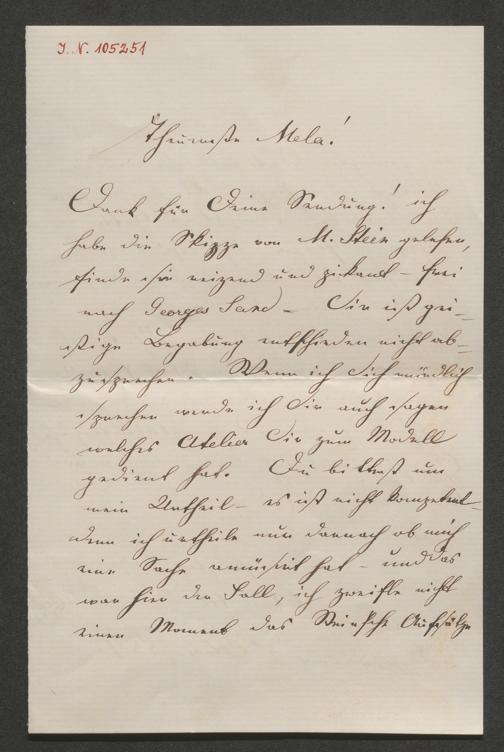 J. N. 105251
Theuerste Mela!
Dank für Deine Sendung! ich
habe die Skizze von M. Stein gelesen,
finde sie reizend und pickant – frei
nach Georges Sand – Ihr ist gei-
stige Begabung entschieden nicht ab-
zusprechen. Wenn ich Dich mündlich
sprechen werde ich Dir auch sagen
welches Atelier Dir zum Modell
gedient hat. Du bittest um
mein Urtheil – es ist nicht kompetent
denn ich urtheile nur darnach ob mich
eine Sache amüsirt hat – und das
war hier der Fall, ich zweifle nicht
einen Moment das Stein'sche Aufsätze